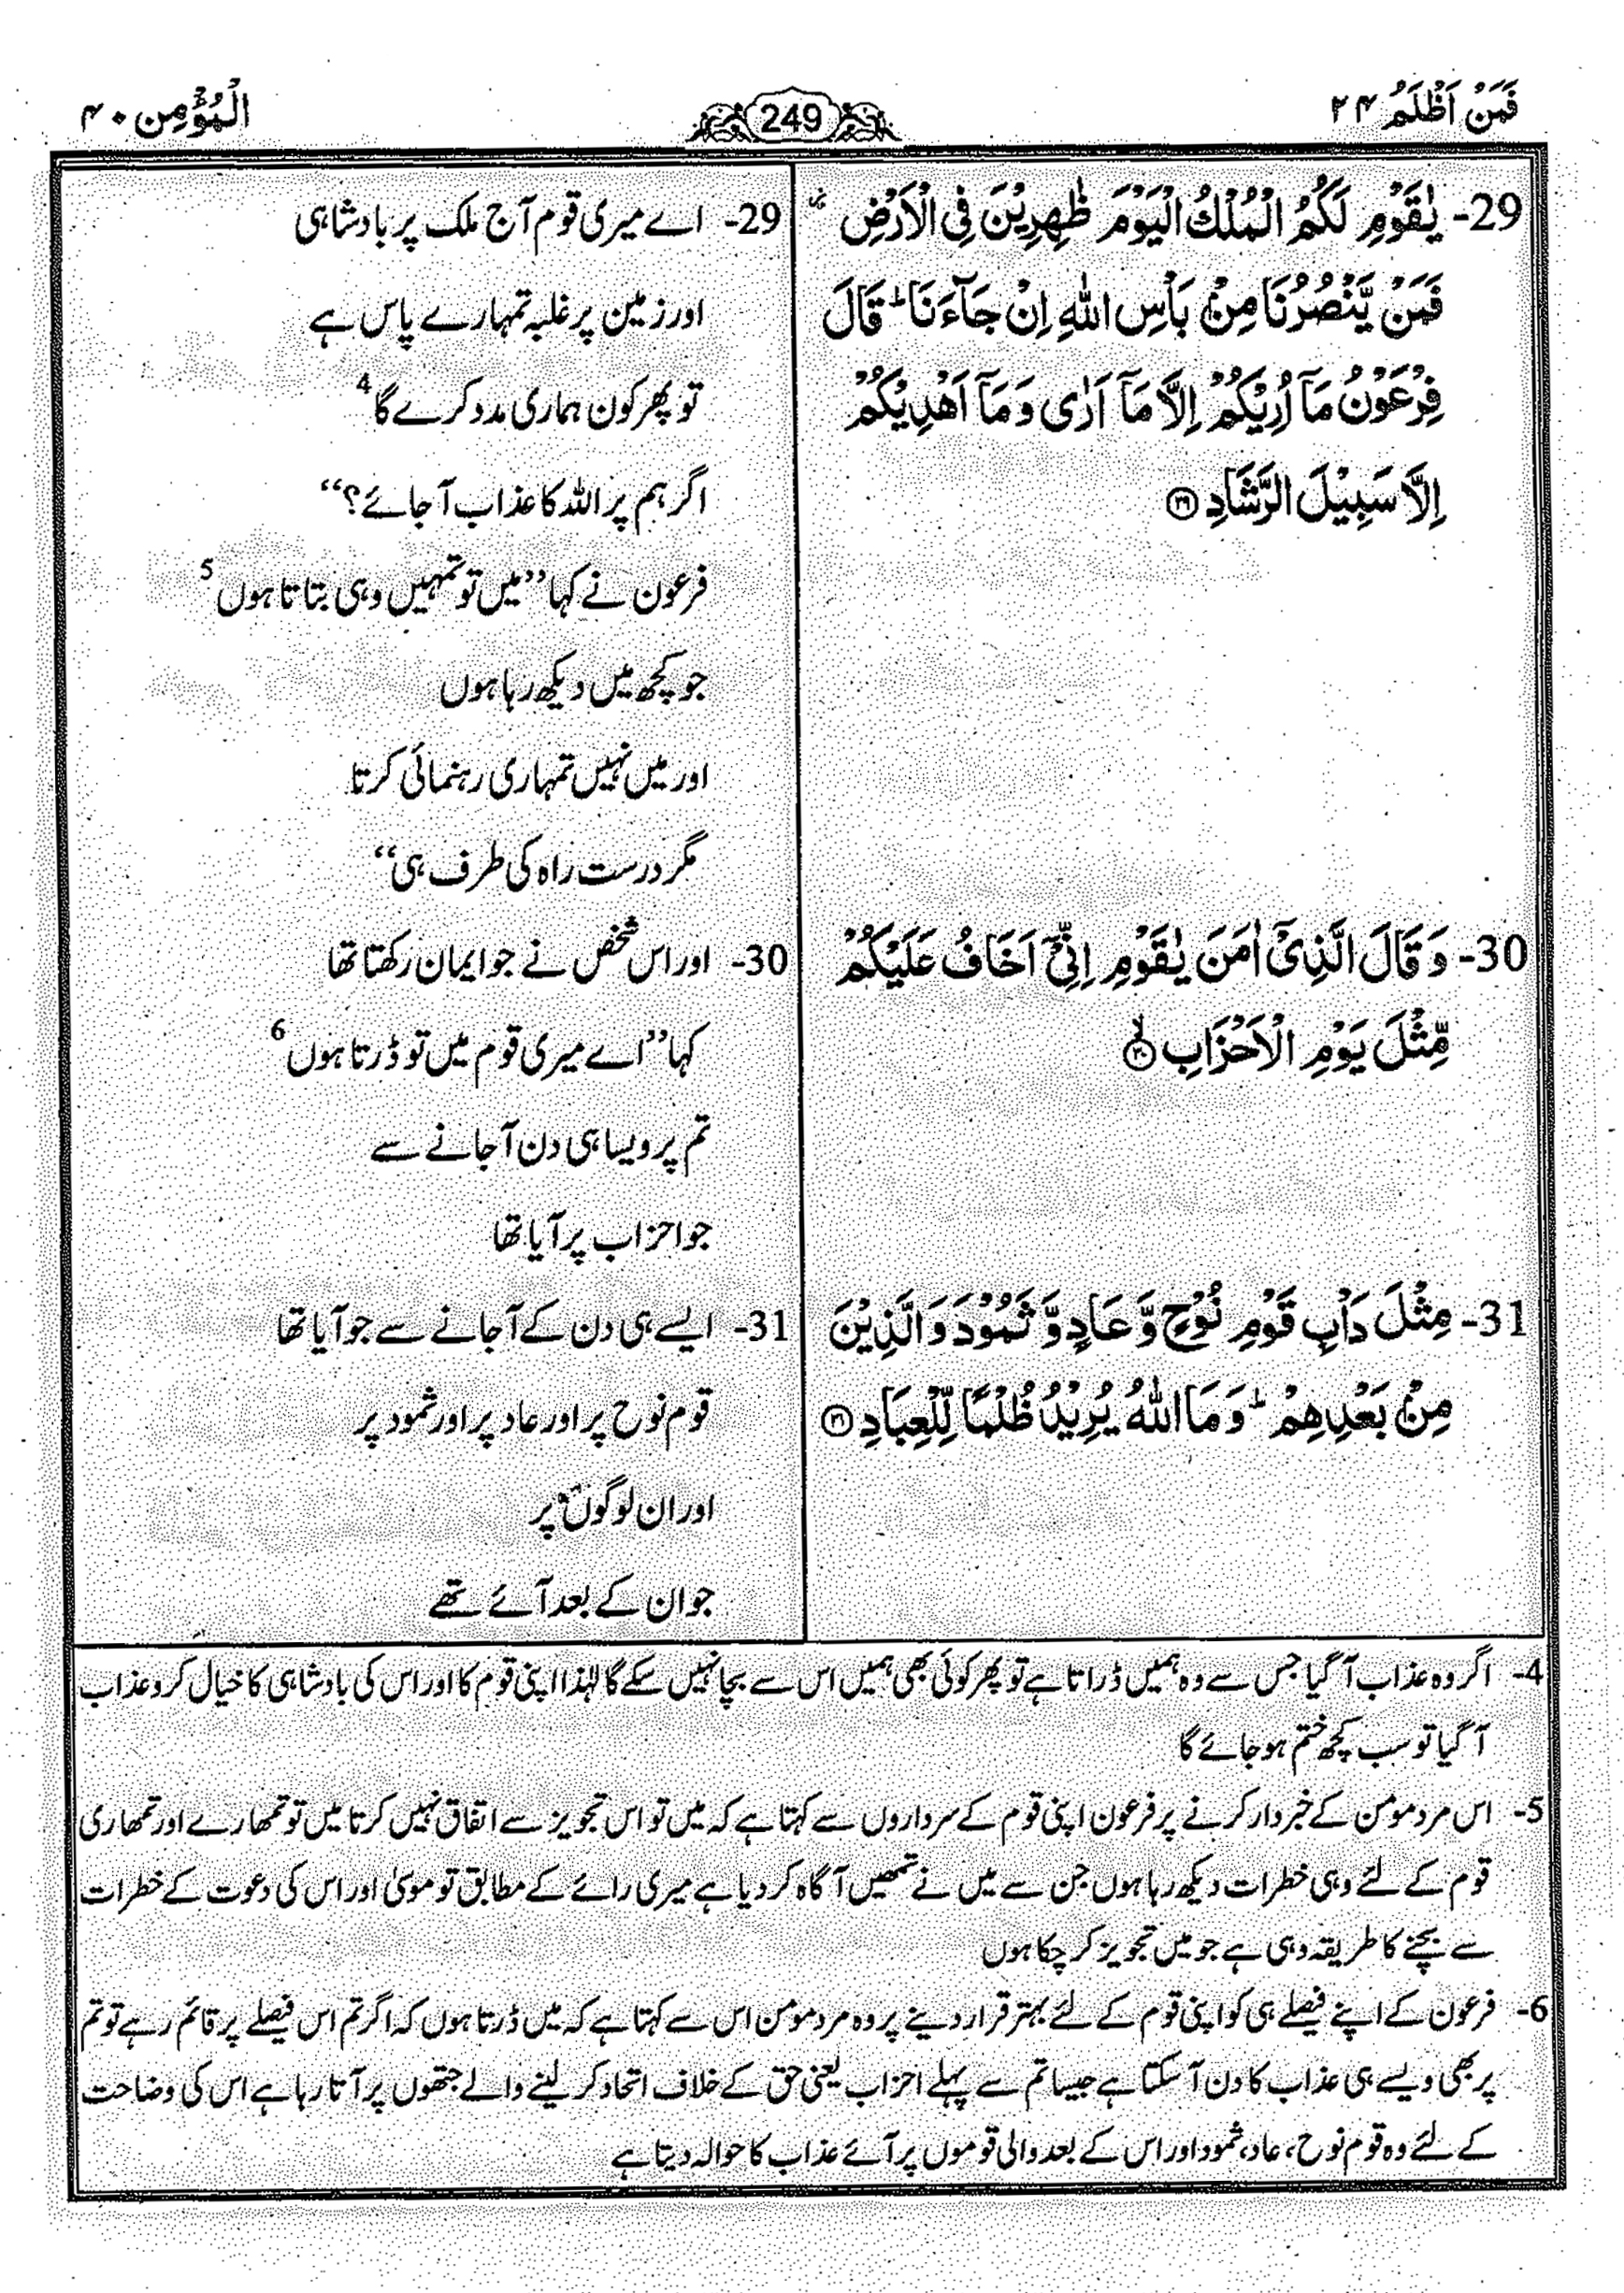 فَمَنْ اَظْلَمُ ۲۴
249
الْمُؤْمِن ۴۰
29- يٰقَوْمِ لَكُمُ الْمُلْكُ الْيَوْمَ ظٰهِرِيْنَ فِى الْاَرْضِ
فَمَنْ يَّنْصُرُنَا مِنْۢ بَاْسِ اللّٰهِ اِنْ جَآءَنَا ؕ قَالَ
فِرْعَوْنُ مَاۤ اُرِيْكُمْ اِلَّا مَاۤ اَرٰى وَمَاۤ اَهْدِيْكُمْ
اِلَّا سَبِيْلَ الرَّشَادِ ۲۹
30- وَقَالَ الَّذِىْۤ اٰمَنَ يٰقَوْمِ اِنِّىْۤ اَخَافُ عَلَيْكُمْ
مِّثْلَ يَوْمِ الْاَحْزَابِ ۳۰
31- مِثْلَ دَاْبِ قَوْمِ نُوْحٍ وَّعَادٍ وَّثَمُوْدَ وَالَّذِيْنَ
مِنْۢ بَعْدِهِمْ ؕ وَمَا اللّٰهُ يُرِيْدُ ظُلْمًا لِّلْعِبَادِ ۳۱
29- اے میری قوم آج ملک پر بادشاہی
اور زمین پر غلبہ تمہارے پاس ہے
تو پھر کون ہماری مدد کرے گا 4
اگر ہم پر اللہ کا عذاب آ جائے؟‘‘
فرعون نے کہا ’’میں تو تمہیں وہی بتاتا ہوں 5
جو کچھ میں دیکھ رہا ہوں
اور میں نہیں تمہاری رہنمائی کرتا
مگر درست راہ کی طرف ہی‘‘
30- اور اس شخص نے جو ایمان رکھتا تھا
کہا ’’اے میری قوم میں تو ڈرتا ہوں 6
تم پر ویسا ہی دن آ جانے سے
جو احزاب پر آیا تھا
31- ایسے ہی دن کے آ جانے سے جو آیا تھا
قوم نوح پر اور عاد پر اور ثمود پر
اور ان لوگوں پر
جو ان کے بعد آئے تھے
4- اگر وہ عذاب آ گیا جس سے وہ ہمیں ڈراتا ہے تو پھر کوئی بھی ہمیں اس سے بچا نہیں سکے گا لہٰذا اپنی قوم کا اور اس کی بادشاہی کا خیال کرو عذاب
آ گیا تو سب کچھ ختم ہو جائے گا
5- اس مرد مومن کے خبردار کرنے پر فرعون اپنی قوم کے سرداروں سے کہتا ہے کہ میں تو اس تجویز سے اتفاق نہیں کرتا میں تو تمھارے اور تمھاری
قوم کے لئے وہی خطرات دیکھ رہا ہوں جن سے میں نے تمھیں آگاہ کر دیا ہے میری رائے کے مطابق تو موسیٰ اور اس کی دعوت کے خطرات
سے بچنے کا طریقہ وہی ہے جو میں تجویز کر چکا ہوں
6- فرعون کے اپنے فیصلے ہی کو اپنی قوم کے لئے بہتر قرار دینے پر وہ مرد مومن اس سے کہتا ہے کہ میں ڈرتا ہوں کہ اگر تم اس فیصلے پر قائم رہے تو تم
پر بھی ویسے ہی عذاب کا دن آ سکتا ہے جیسا تم سے پہلے احزاب یعنی حق کے خلاف اتحاد کر لینے والے جتھوں پر آتا رہا ہے اس کی وضاحت
کے لئے وہ قوم نوح، عاد، ثمود اور اس کے بعد والی قوموں پر آئے عذاب کا حوالہ دیتا ہے